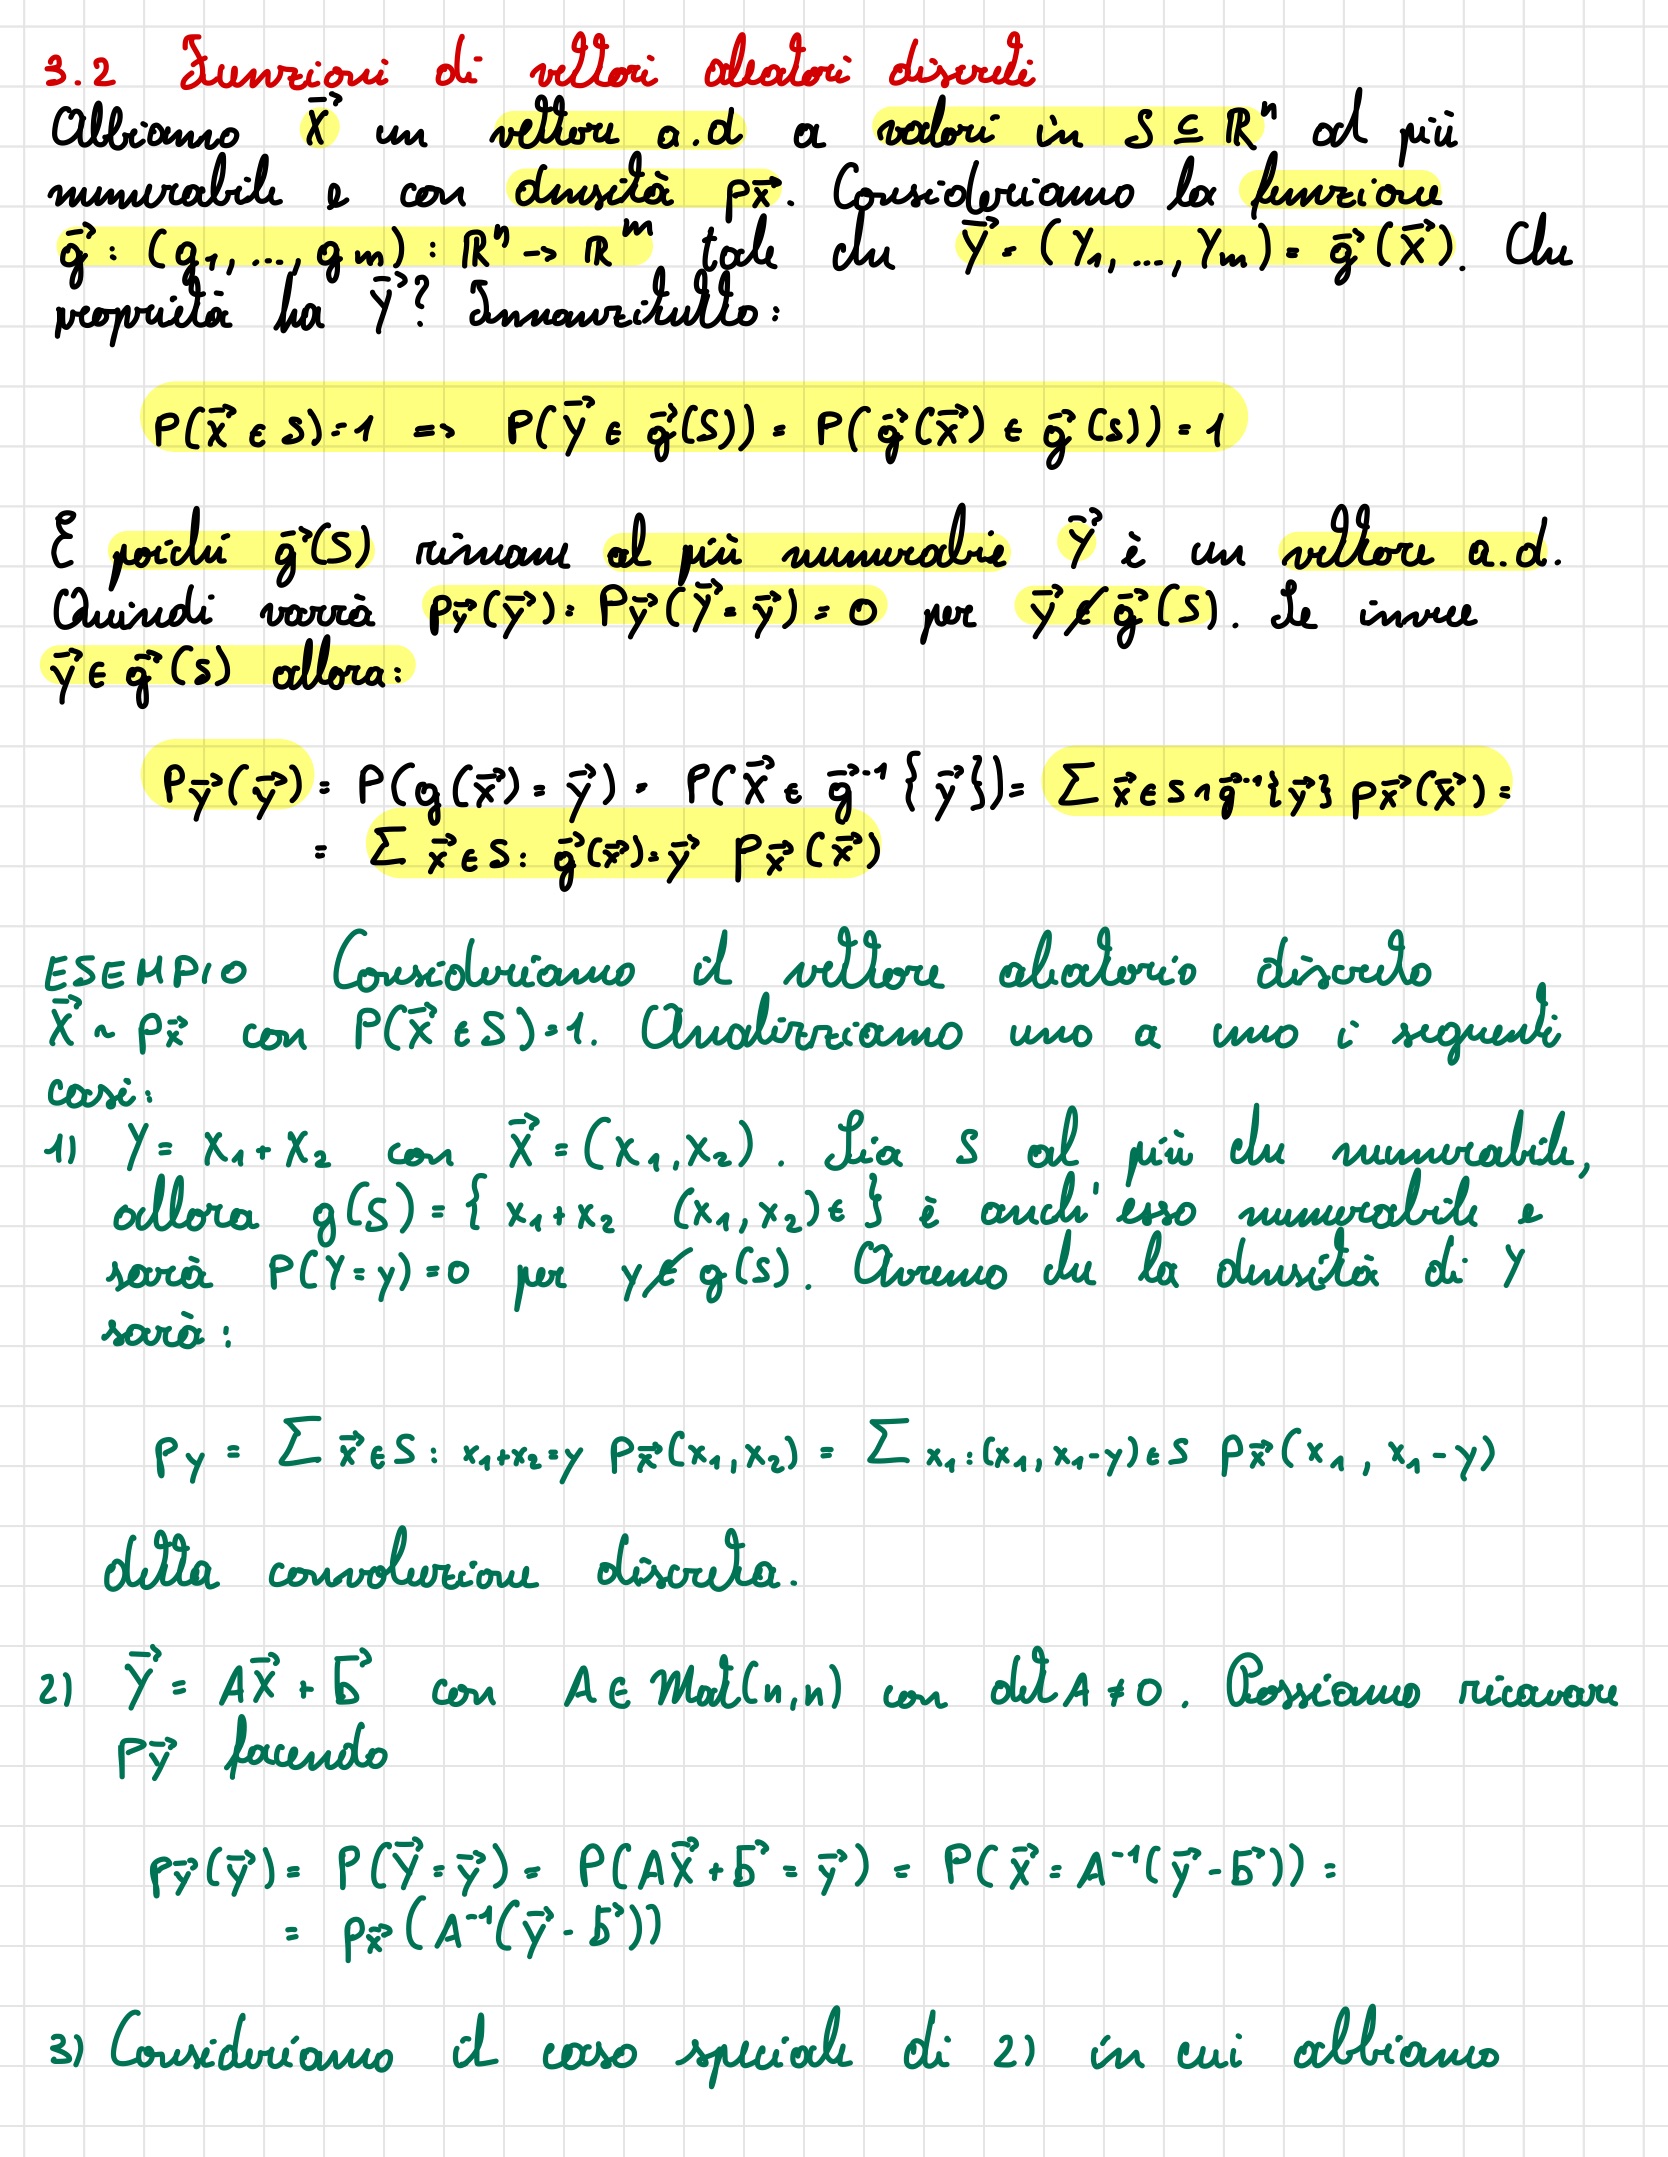 3.2 Funzioni di vettori aleatori discreti
Abbiamo X⃗ un vettore a.d a valori in S ⊆ ℝⁿ al più
numerabile e con densità p_X⃗. Consideriamo la funzione
g⃗ : (g₁, ..., gₘ) : ℝⁿ → ℝᵐ tale che Y⃗ = (Y₁, ..., Yₘ) = g⃗(X⃗). Che
proprietà ha Y⃗? Innanzitutto:
P(X⃗ ∈ S) = 1 => P(Y⃗ ∈ g⃗(S)) = P(g⃗(X⃗) ∈ g⃗(S)) = 1
E poiché g⃗(S) rimane al più numerabie Y⃗ è un vettore a.d.
Quindi varrà p_Y⃗(y⃗) = P_Y⃗(Y⃗ = y⃗) = 0 per y⃗ ∉ g⃗(S). Se invece
y⃗ ∈ g⃗(S) allora:
P_Y⃗(y⃗) = P(g(X⃗) = y⃗) = P(X⃗ ∈ g⃗⁻¹{y⃗}) = ∑ x⃗ ∈ S ∩ g⃗⁻¹{y⃗} p_X⃗(x⃗) =
= ∑ x⃗ ∈ S : g⃗(x⃗) = y⃗ p_X⃗(x⃗)
ESEMPIO Consideriamo il vettore aleatorio discreto
X⃗ ~ p_X⃗ con P(X⃗ ∈ S) = 1. Analizziamo uno a uno i seguenti
casi:
1) Y = X₁ + X₂ con X⃗ = (X₁, X₂). Sia S al più che numerabile,
allora g(S) = { x₁ + x₂ (x₁, x₂) ∈ } è anch'esso numerabile e
sarà P(Y = y) = 0 per y ∉ g(S). Avremo che la densità di Y
sarà:
p_Y = ∑ x⃗ ∈ S : x₁+x₂=y p_X⃗(x₁, x₂) = ∑ x₁ : (x₁, x₁-y) ∈ S p_X⃗(x₁, x₁-y)
detta convoluzione discreta.
2) Y⃗ = AX⃗ + b⃗ con A ∈ Mat(n,n) con det A ≠ 0. Possiamo ricavare
p_Y⃗ facendo
p_Y⃗(y⃗) = P(Y⃗ = y⃗) = P(AX⃗ + b⃗ = y⃗) = P(X⃗ = A⁻¹(y⃗ - b⃗)) =
= p_X⃗(A⁻¹(y⃗ - b⃗))
3) Consideriamo il caso speciale di 2) in cui abbiamo